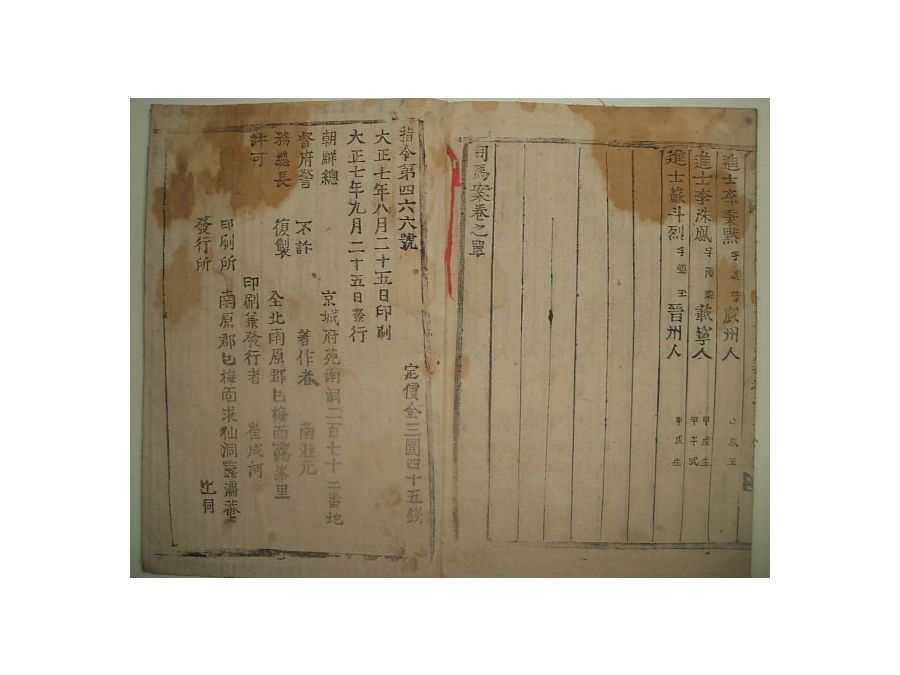 進士李秉黙 字 廣州人 戌生
進士李洙鳳 字陽 載寧人 甲戌生 甲午式
進士蘇斗烈 字 晋州人 甲戌生
司馬案卷之單
指令第四六六號 定價金三圓四十五錢
大正七年八月二十五日印刷
大正七年九月二十五日發行
朝鮮總 京城府苑南洞二百七十二番地
督府警 不許 著作者 南廷元
務總長 復製 全北南原郡巳梅面露峯里
許可 印刷兼發行者 崔成河
印刷所 南原郡巳梅面求仙洞露濡菴
發行所 仝洞